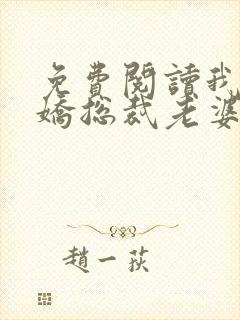 免費閱讀我
嬌總裁老婆
趙一荻